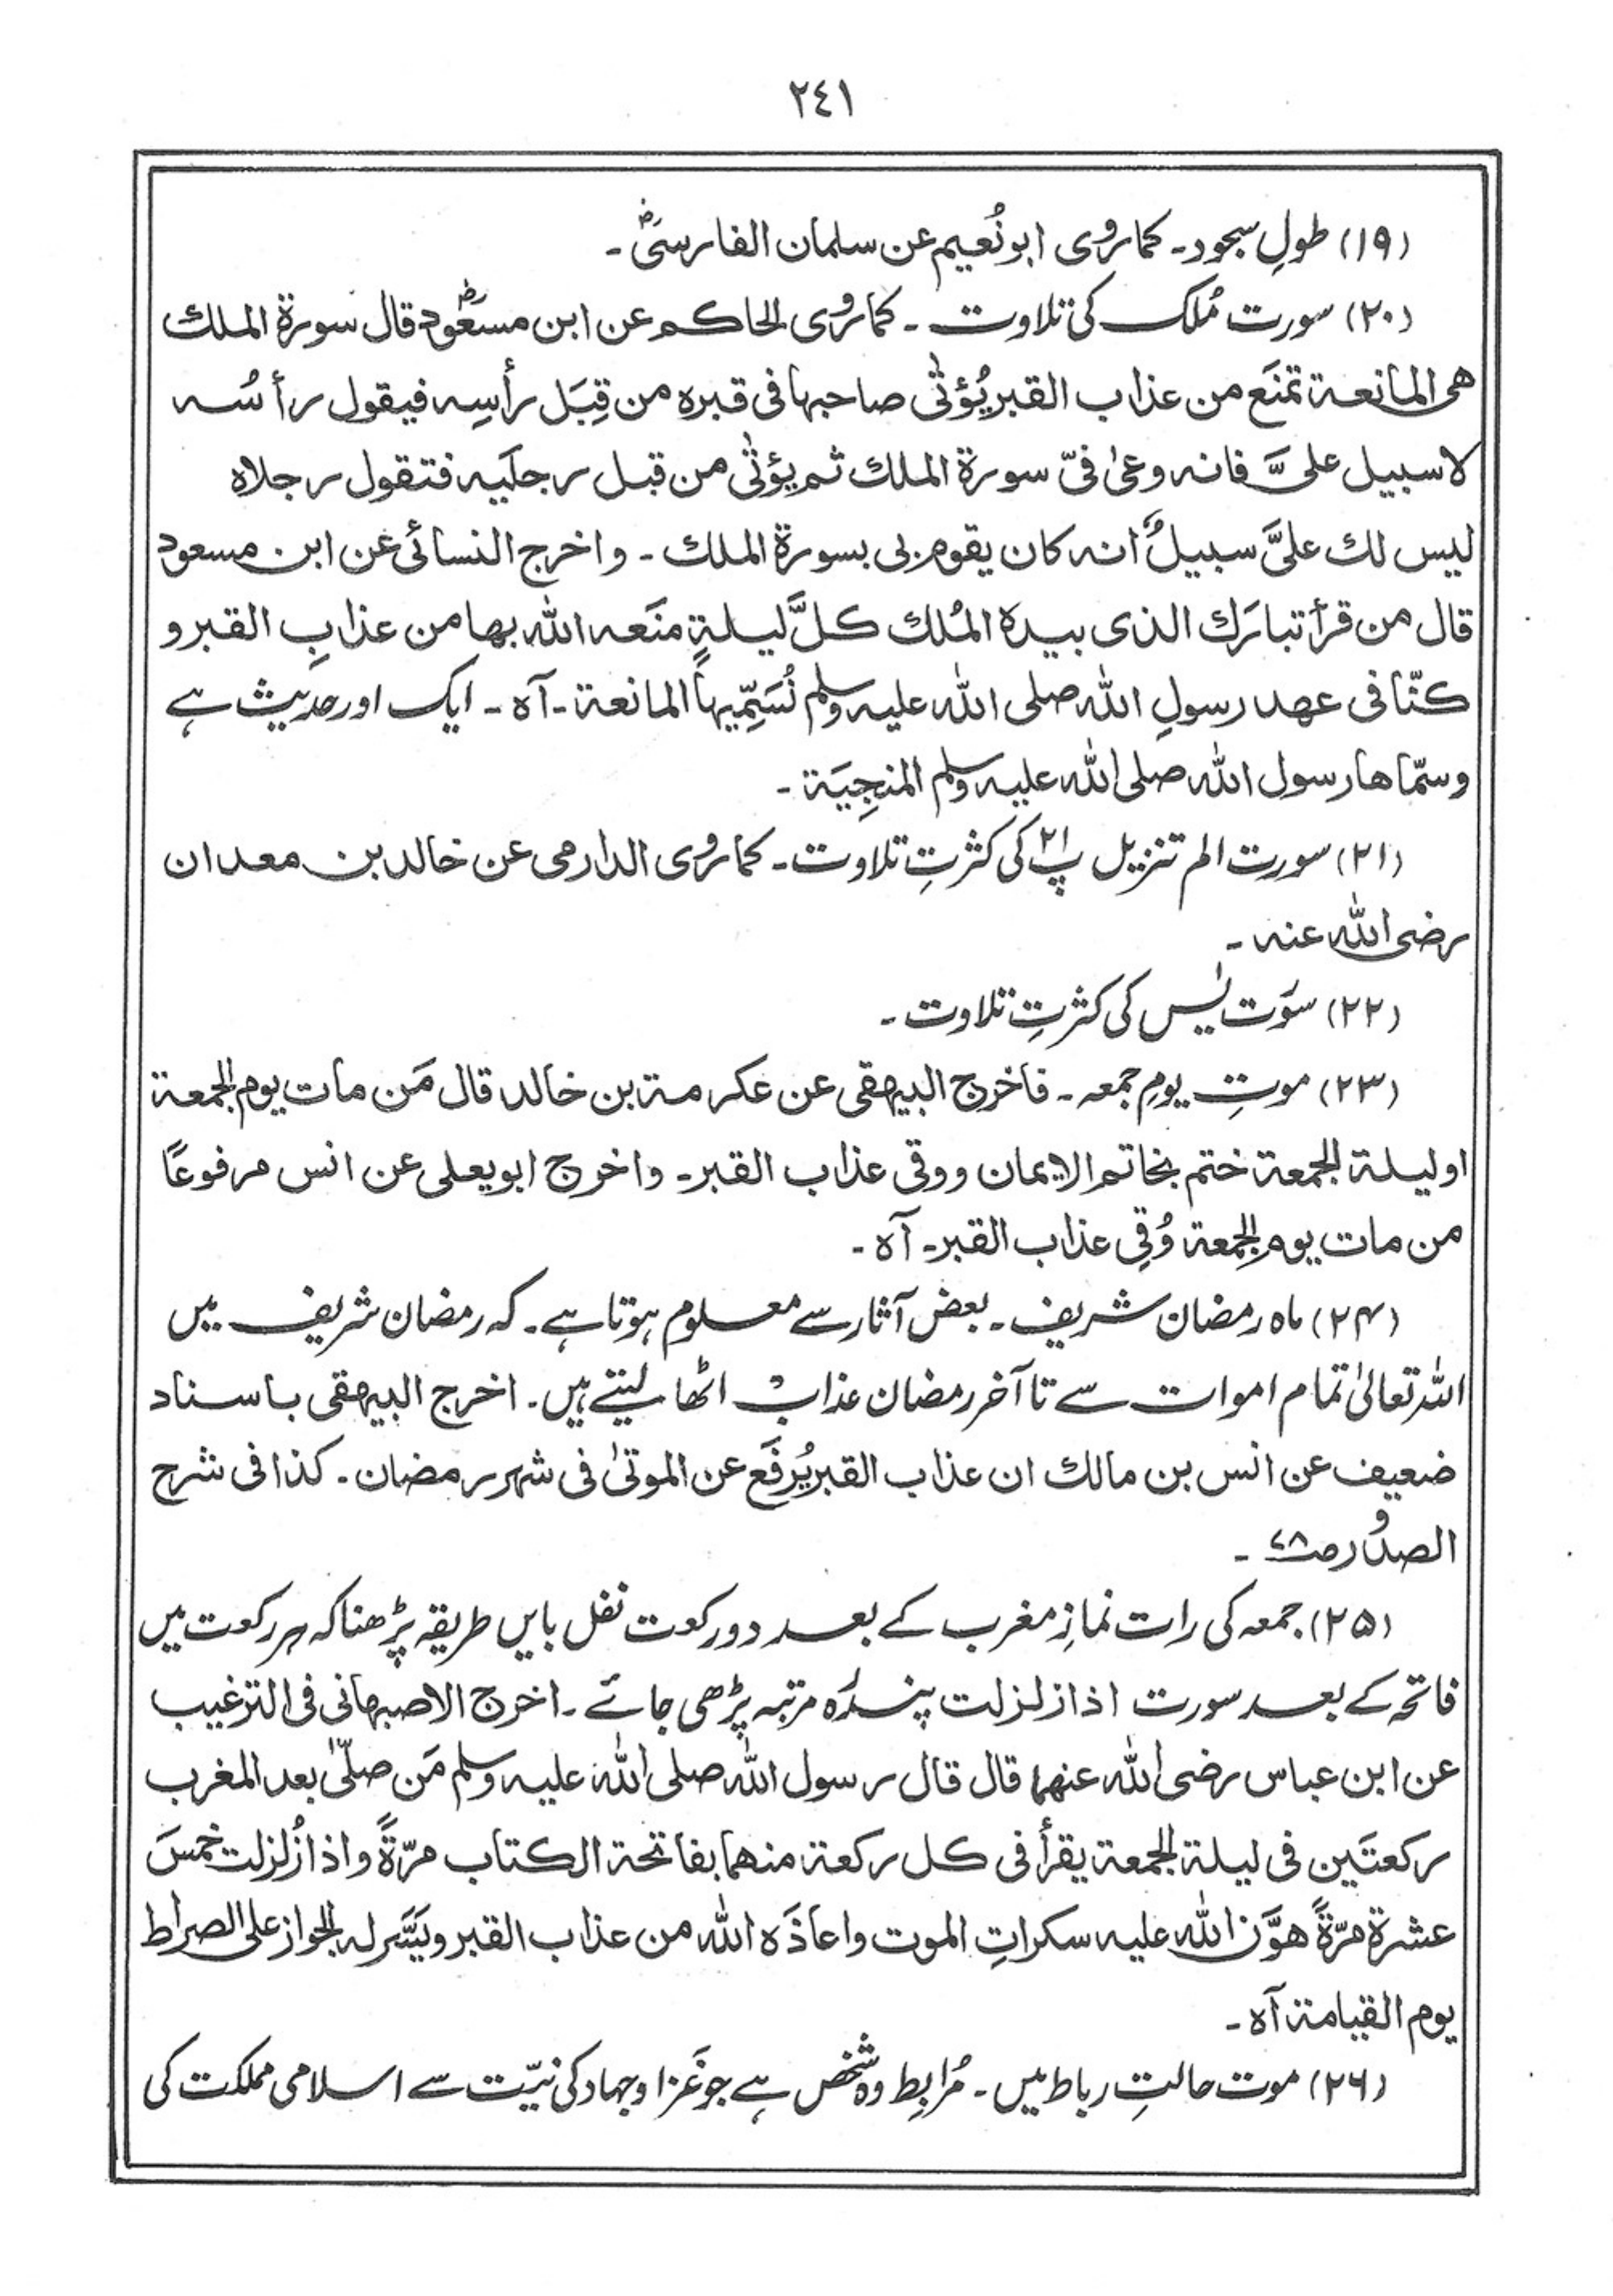 ۲٤۱
(۱۹) طولِ سجود۔ کما روی ابو نُعیم عن سلمان الفارسیؓ۔
(۲۰) سورت مُلک کی تلاوت ۔ کما روی الحاکم عن ابن مسعودؓ قال سورۃ الملك
ھی المانعۃ تمنَع من عذاب القبر یُؤتٰی صاحبہا فی قبرہ من قِبَل رأسِہ فیقول رأسُہ
لا سبیل علیَّ فانہ وعیٰ فیّ سورۃ الملك ثم یؤتٰی من قبل رجلَیہ فتقول رجلاہ
لیس لك علیَّ سبیلٌ أنہ کان یقوم بی بسورۃ الملك ۔ واخرج النسائی عن ابن مسعود
قال من قرأ تبارَك الذی بیدہ المُلك کلَّ لیلۃٍ منَعہ اللہ بھا من عذابِ القبر و
کنّا فی عھد رسولِ اللہ صلی اللہ علیہ وسلم نُسَمِّیہا المانعۃ ۔ آہ ۔ ایک اور حدیث ہے
وسمّاھا رسول اللہ صلی اللہ علیہ وسلم المنجِیَۃ ۔
(۲۱) سورت الم تنزیل پ۲۱ کی کثرتِ تلاوت۔ کما روی الدارمی عن خالد بن معدان
رضی اللہ عنہ ۔
(۲۲) سوَرت یٰس کی کثرتِ تلاوت ۔
(۲۳) موتِ یومِ جمعہ ۔ فاخرج البیھقی عن عکرمۃ بن خالد قال مَن مات یوم الجمعۃ
او لیلۃ الجمعۃ ختم بخاتم الایمان ووقی عذاب القبر۔ واخرج ابو یعلی عن انس مرفوعًا
من مات یوم الجمعۃ وُقِی عذاب القبر۔ آہ ۔
(۲۴) ماہ رمضان شریف ۔ بعض آثار سے معلوم ہوتا ہے ۔ کہ رمضان شریف میں
اللہ تعالیٰ تمام اموات سے تا آخر رمضان عذاب اٹھا لیتے ہیں ۔ اخرج البیھقی باسناد
ضعیف عن انس بن مالك ان عذاب القبر یُرفَع عن الموتٰی فی شھر رمضان ۔ کذا فی شرح
الصدور ص۷۸ ۔
(۲۵) جمعہ کی رات نمازِ مغرب کے بعد دو رکعت نفل بایں طریقہ پڑھنا کہ ہر رکعت میں
فاتحہ کے بعد سورت اذا زلزلت پندرہ مرتبہ پڑھی جائے ۔ اخرج الاصبہانی فی الترغیب
عن ابن عباس رضی اللہ عنھما قال قال رسول اللہ صلی اللہ علیہ وسلم مَن صلّیٰ بعد المغرب
رکعتَین فی لیلۃ الجمعۃ یقرأ فی کل رکعۃ منھما بفاتحۃ الکتاب مرّۃً واذا زُلزلت خمسَ
عشرۃ مرّۃً ھوَّن اللہ علیہ سکراتِ الموت واعاذَہ اللہ من عذاب القبر ویَسَّر لہ الجواز علی الصراط
یوم القیامۃ آہ ۔
(۲۶) موت حالتِ رباط میں ۔ مُرابِط وہ شخص ہے جو غَزا وجہاد کی نیّت سے اسلامی مملکت کی